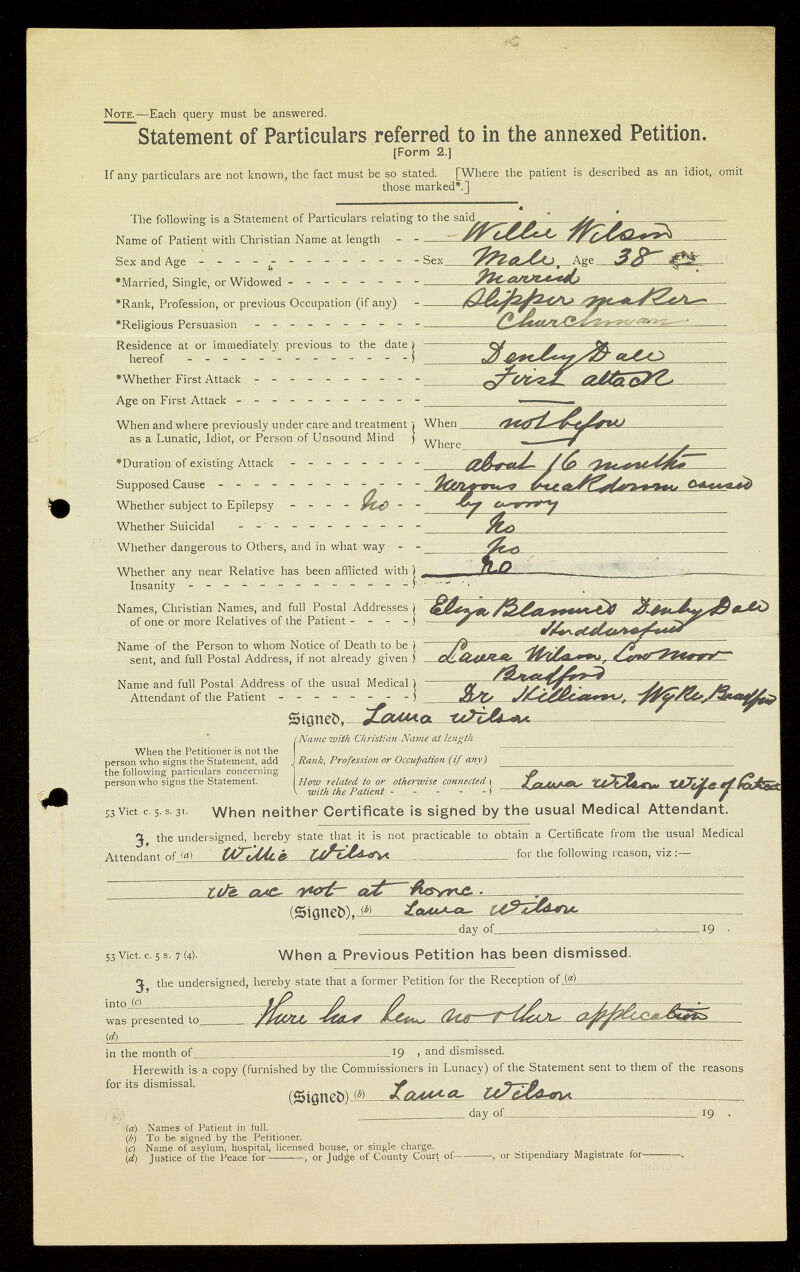 NOTE.—Each query must be answered.
Statement of Particulars referred to in the annexed Petition.
[Form 2.]
If any particulars are not known, the fact must be so stated. [Where the patient is described as an idiot, omit
those marked*.]
The following is a Statement of Particulars relating to the said
Name of Patient with Christian Name at length - - Willie Wilson
Sex and Age - - - - - - - - - - - - - Sex Male. Age 38
*Married, Single, or Widowed - - - - - - - Married
*Rank, Profession, or previous Occupation (if any) - Slipper maker
*Religious Persuasion - - - - - - - - - Churchman
Residence at or immediately previous to the date
hereof - - - - - - - - - - - - - Denby Dale
*Whether First Attack - - - - - - - - - First attack
Age on First Attack - - - - - - - - - - —
When and where previously under care and treatment When not before
as a Lunatic, Idiot, or Person of Unsound Mind Where —
*Duration of existing Attack - - - - - - about 16 months
Supposed Cause - - - - - - - - - - - Nervous breakdown caused
Whether subject to Epilepsy - - - - No - - by worry
Whether Suicidal - - - - - - - - - - No
Whether dangerous to Others, and in what way - - No
Whether any near Relative has been afflicted with No
Insanity - - - - - - - - - - - - -
Names, Christian Names, and full Postal Addresses Eliza Blamires Denby Dale
of one or more Relatives of the Patient - - - - Huddersfield
Name of the Person to whom Notice of Death to be
sent, and full Postal Address, if not already given Laura Wilson, Low Moor
Bradford
Name and full Postal Address of the usual Medical
Attendant of the Patient - - - - - - - Dr Hilliam, Wyke, Bradford
Signed, Laura Wilson
When the Petitioner is not the
person who signs the Statement, add
the following particulars concerning
person who signs the Statement.
Name with Christian Name at length
Rank, Profession or Occupation (if any)
How related to or otherwise connected
with the Patient - - - - - Laura Wilson Wife of Patient
53 Vict. c. 5. s. 31. When neither Certificate is signed by the usual Medical Attendant.
I, the undersigned, hereby state that it is not practicable to obtain a Certificate from the usual Medical
Attendant of (a) Willie Wilson for the following reason, viz:—
We are not at home.
(Signed), (b) Laura Wilson
day of 19 .
53 Vict. c. 5 s. 7 (4). When a Previous Petition has been dismissed.
I, the undersigned, hereby state that a former Petition for the Reception of (a)
into (c)
was presented to There has been no other application
(d)
in the month of 19 , and dismissed.
Herewith is a copy (furnished by the Commissioners in Lunacy) of the Statement sent to them of the reasons
for its dismissal.
(Signed) (b) Laura Wilson
day of 19 .
(a) Names of Patient in full.
(b) To be signed by the Petitioner.
(c) Name of asylum, hospital, licensed house, or single charge.
(d) Justice of the Peace for——, or Judge of County Court of——, or Stipendiary Magistrate for——.